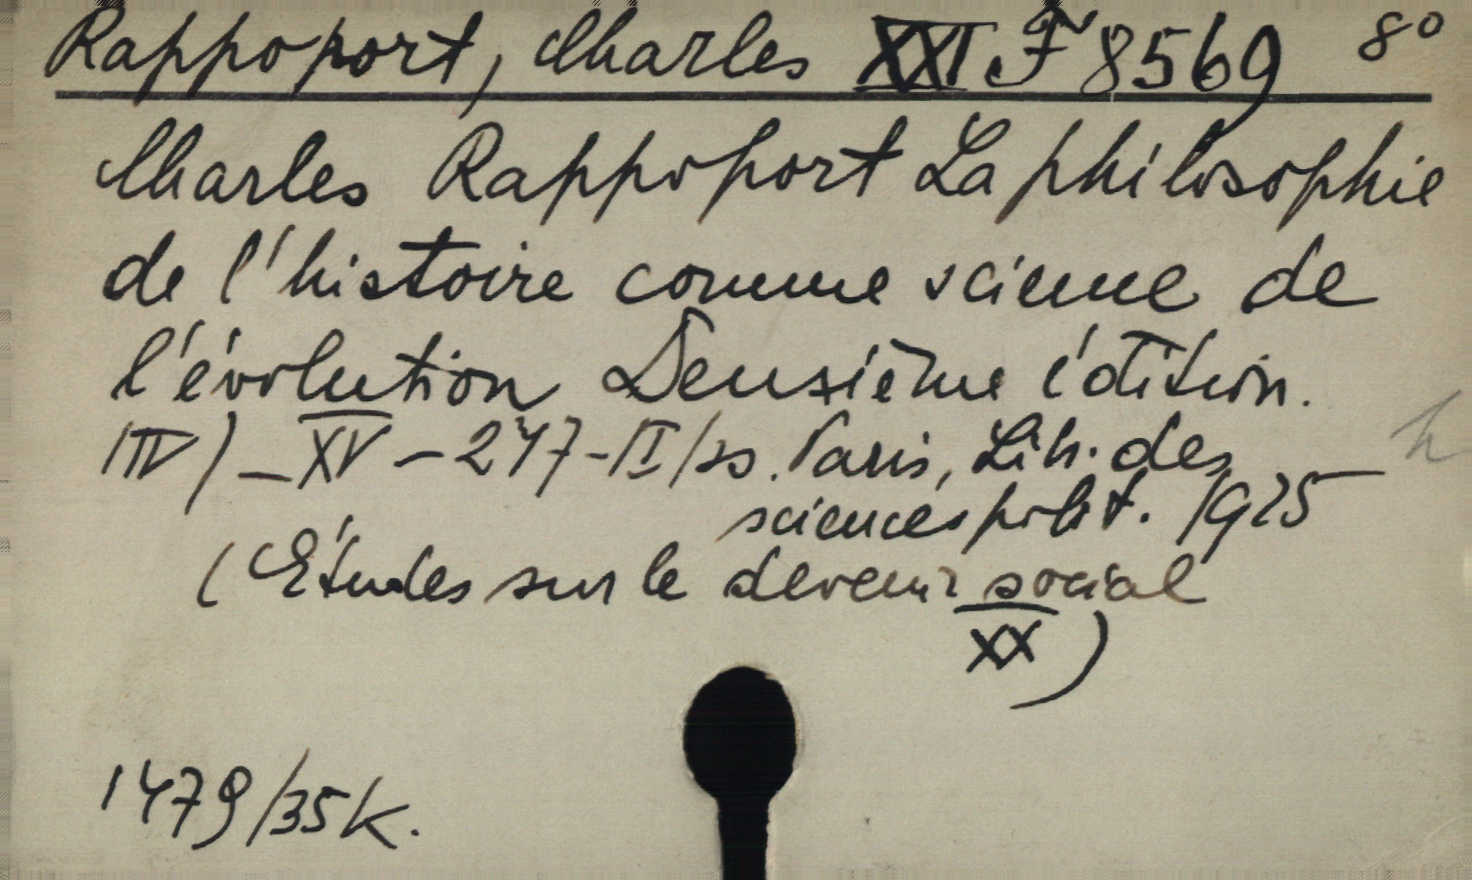 Rappoport, Charles XXI F 8569 8°
Charles Rappoport La philosophie
de l'histoire comme science de
l'évolution Deuxième édition.
(IV) – XV – 247 – II / Paris, Lib. des
sciences polit. 1925
(Études sur le devenir social
XX)
1479/35K.